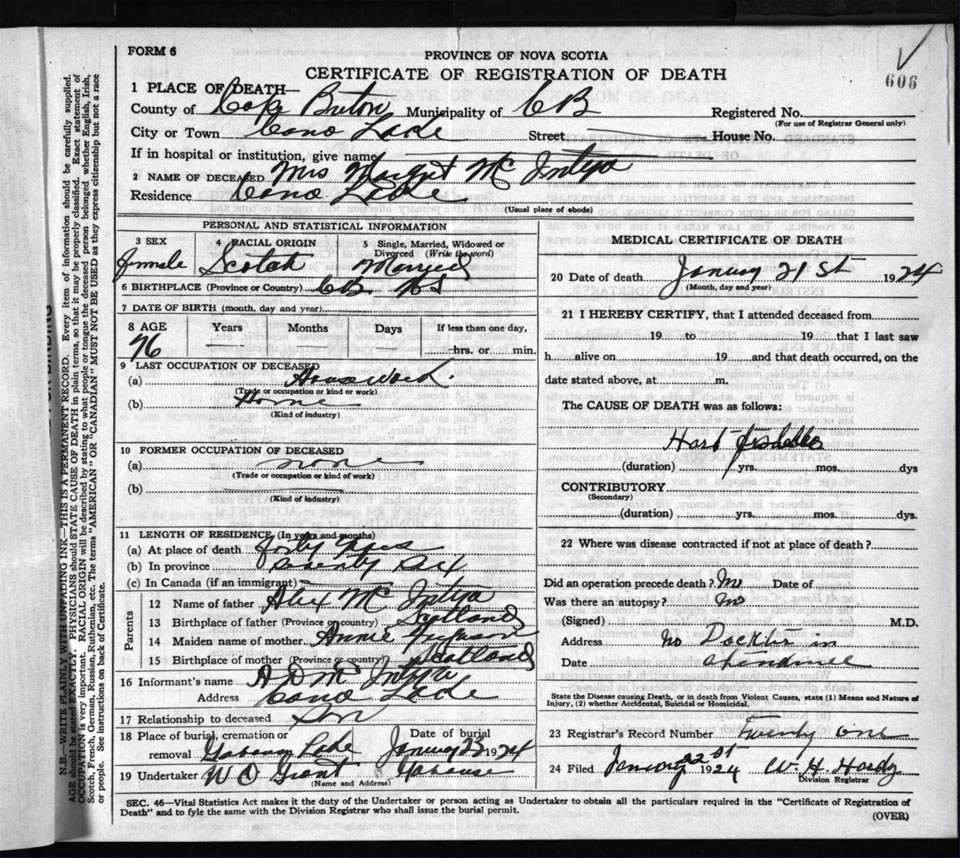 FORM 6
PROVINCE OF NOVA SCOTIA
CERTIFICATE OF REGISTRATION OF DEATH
606
1 PLACE OF DEATH—
County of Cape Breton Municipality of CB Registered No.
(For use of Registrar General only)
City or Town Cano Lade Street House No.
If in hospital or institution, give name
2 NAME OF DECEASED Mrs Margret Mc Intya
Residence Cano Lade
(Usual place of abode)
PERSONAL AND STATISTICAL INFORMATION
3 SEX 4 RACIAL ORIGIN 5 Single, Married, Widowed or Divorced (Write the word)
female Scotch Married
6 BIRTHPLACE (Province or Country) CB NS
7 DATE OF BIRTH (month, day and year)
8 AGE Years Months Days If less than one day,
76 hrs. or min.
9 LAST OCCUPATION OF DECEASED
(a) House work
(Trade or occupation or kind or work)
(b) Home
(Kind of industry)
10 FORMER OCCUPATION OF DECEASED
(a) none
(Trade or occupation or kind of work)
(b)
(Kind of industry)
11 LENGTH OF RESIDENCE (In years and months)
(a) At place of death forty years
(b) In province Seventy Six
(c) In Canada (if an immigrant)
Parents
12 Name of father Alex Mc Intya
13 Birthplace of father (Province or country) Scotland
14 Maiden name of mother Annie
15 Birthplace of mother (Province or country) Scotland
16 Informant's name A D Mc Intya
Address Cano Lade
17 Relationship to deceased Son
18 Place of burial, cremation or removal Lade
Date of burial January 23 1924
19 Undertaker W D Grant
(Name and Address)
MEDICAL CERTIFICATE OF DEATH
20 Date of death January 21st 1924
(Month, day and year)
21 I HEREBY CERTIFY, that I attended deceased from
19 to 19 that I last saw
h alive on 19 and that death occurred, on the
date stated above, at m.
The CAUSE OF DEATH was as follows:
Hart
(duration) yrs. mos. dys
CONTRIBUTORY
(Secondary)
(duration) yrs. mos. dys.
22 Where was disease contracted if not at place of death?
Did an operation precede death? No Date of
Was there an autopsy? No
(Signed) M.D.
Address No Docktir in
Date
State the Disease causing Death, or in death from Violent Causes, state (1) Means and Nature of
Injury, (2) whether Accidental, Suicidal or Homicidal.
23 Registrar's Record Number Twenty one
24 Filed January 1924 W. H. Hardy
Division Registrar
SEC. 46—Vital Statistics Act makes it the duty of the Undertaker or person acting as Undertaker to obtain all the particulars required in the "Certificate of Registration of
Death" and to fyle the same with the Division Registrar who shall issue the burial permit.
(OVER)
N.B.—WRITE PLAINLY WITH UNFADING INK—THIS IS A PERMANENT RECORD. Every item of information should be carefully supplied.
AGE should be stated EXACTLY. PHYSICIANS should STATE CAUSE OF DEATH in plain terms, so that it may be properly classified. Exact statement of
OCCUPATION is very important. RACIAL ORIGIN will be described by stating to what people or tongue the deceased person belonged whether English, Irish,
Scotch, French, German, Russian, Ruthenian, etc. The terms "AMERICAN" OR "CANADIAN" MUST NOT BE USED as they express citizenship but not a race
or people. See instructions on back of Certificate.